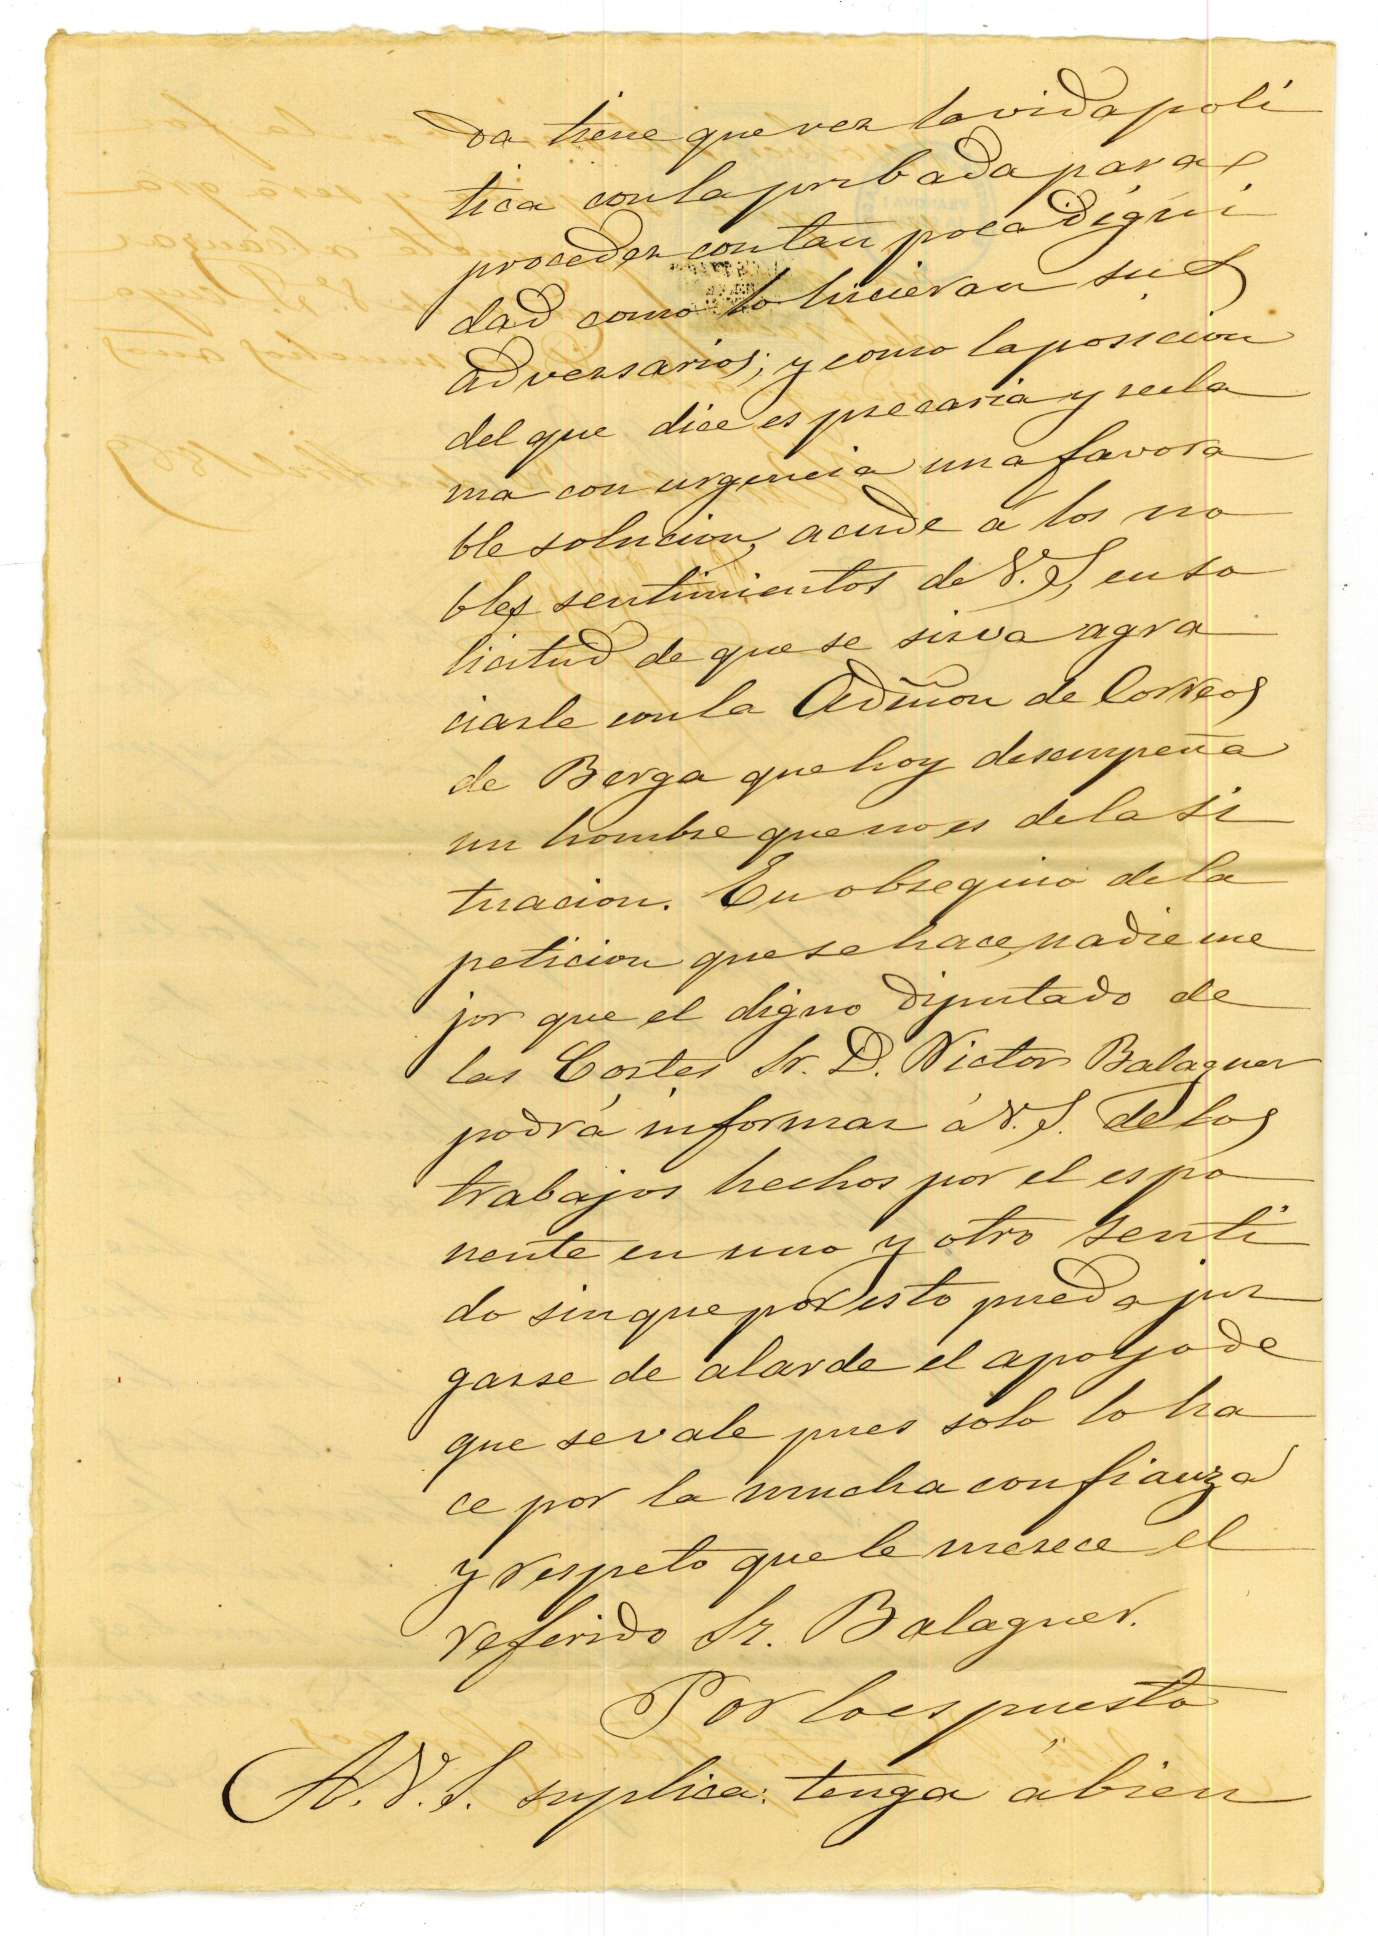 da tiene que ver la vida polí
tica con la pribada para
proceder con tan poca digni
dad como lo hicieran sus
adversarios; y como la posicion
del que dice es precaria y recla
ma con urgencia una favora
ble solucion, acude á los no
bles sentimientos de V. S, en so
licitud de que se sirva agra
ciarle con la Admon de Correos
de Berga que hoy desempeña
un hombre que no es de la si
tuacion. En obsequio de la
peticion que se hace, nadie me
jor que el digno diputado de
las Cortes Sr. D. Victor Balaguer
podrá informar á V. S. de los
trabajos hechos por el espo
nente en uno y otro senti
do sin que por esto pueda juz
garse de alarde el apoyo de
que se vale pues solo lo ha
ce por la mucha confianza
y respeto que le merece el
referido Sr. Balaguer.
Por lo espuesto
A. V. S. suplica: tenga á bien